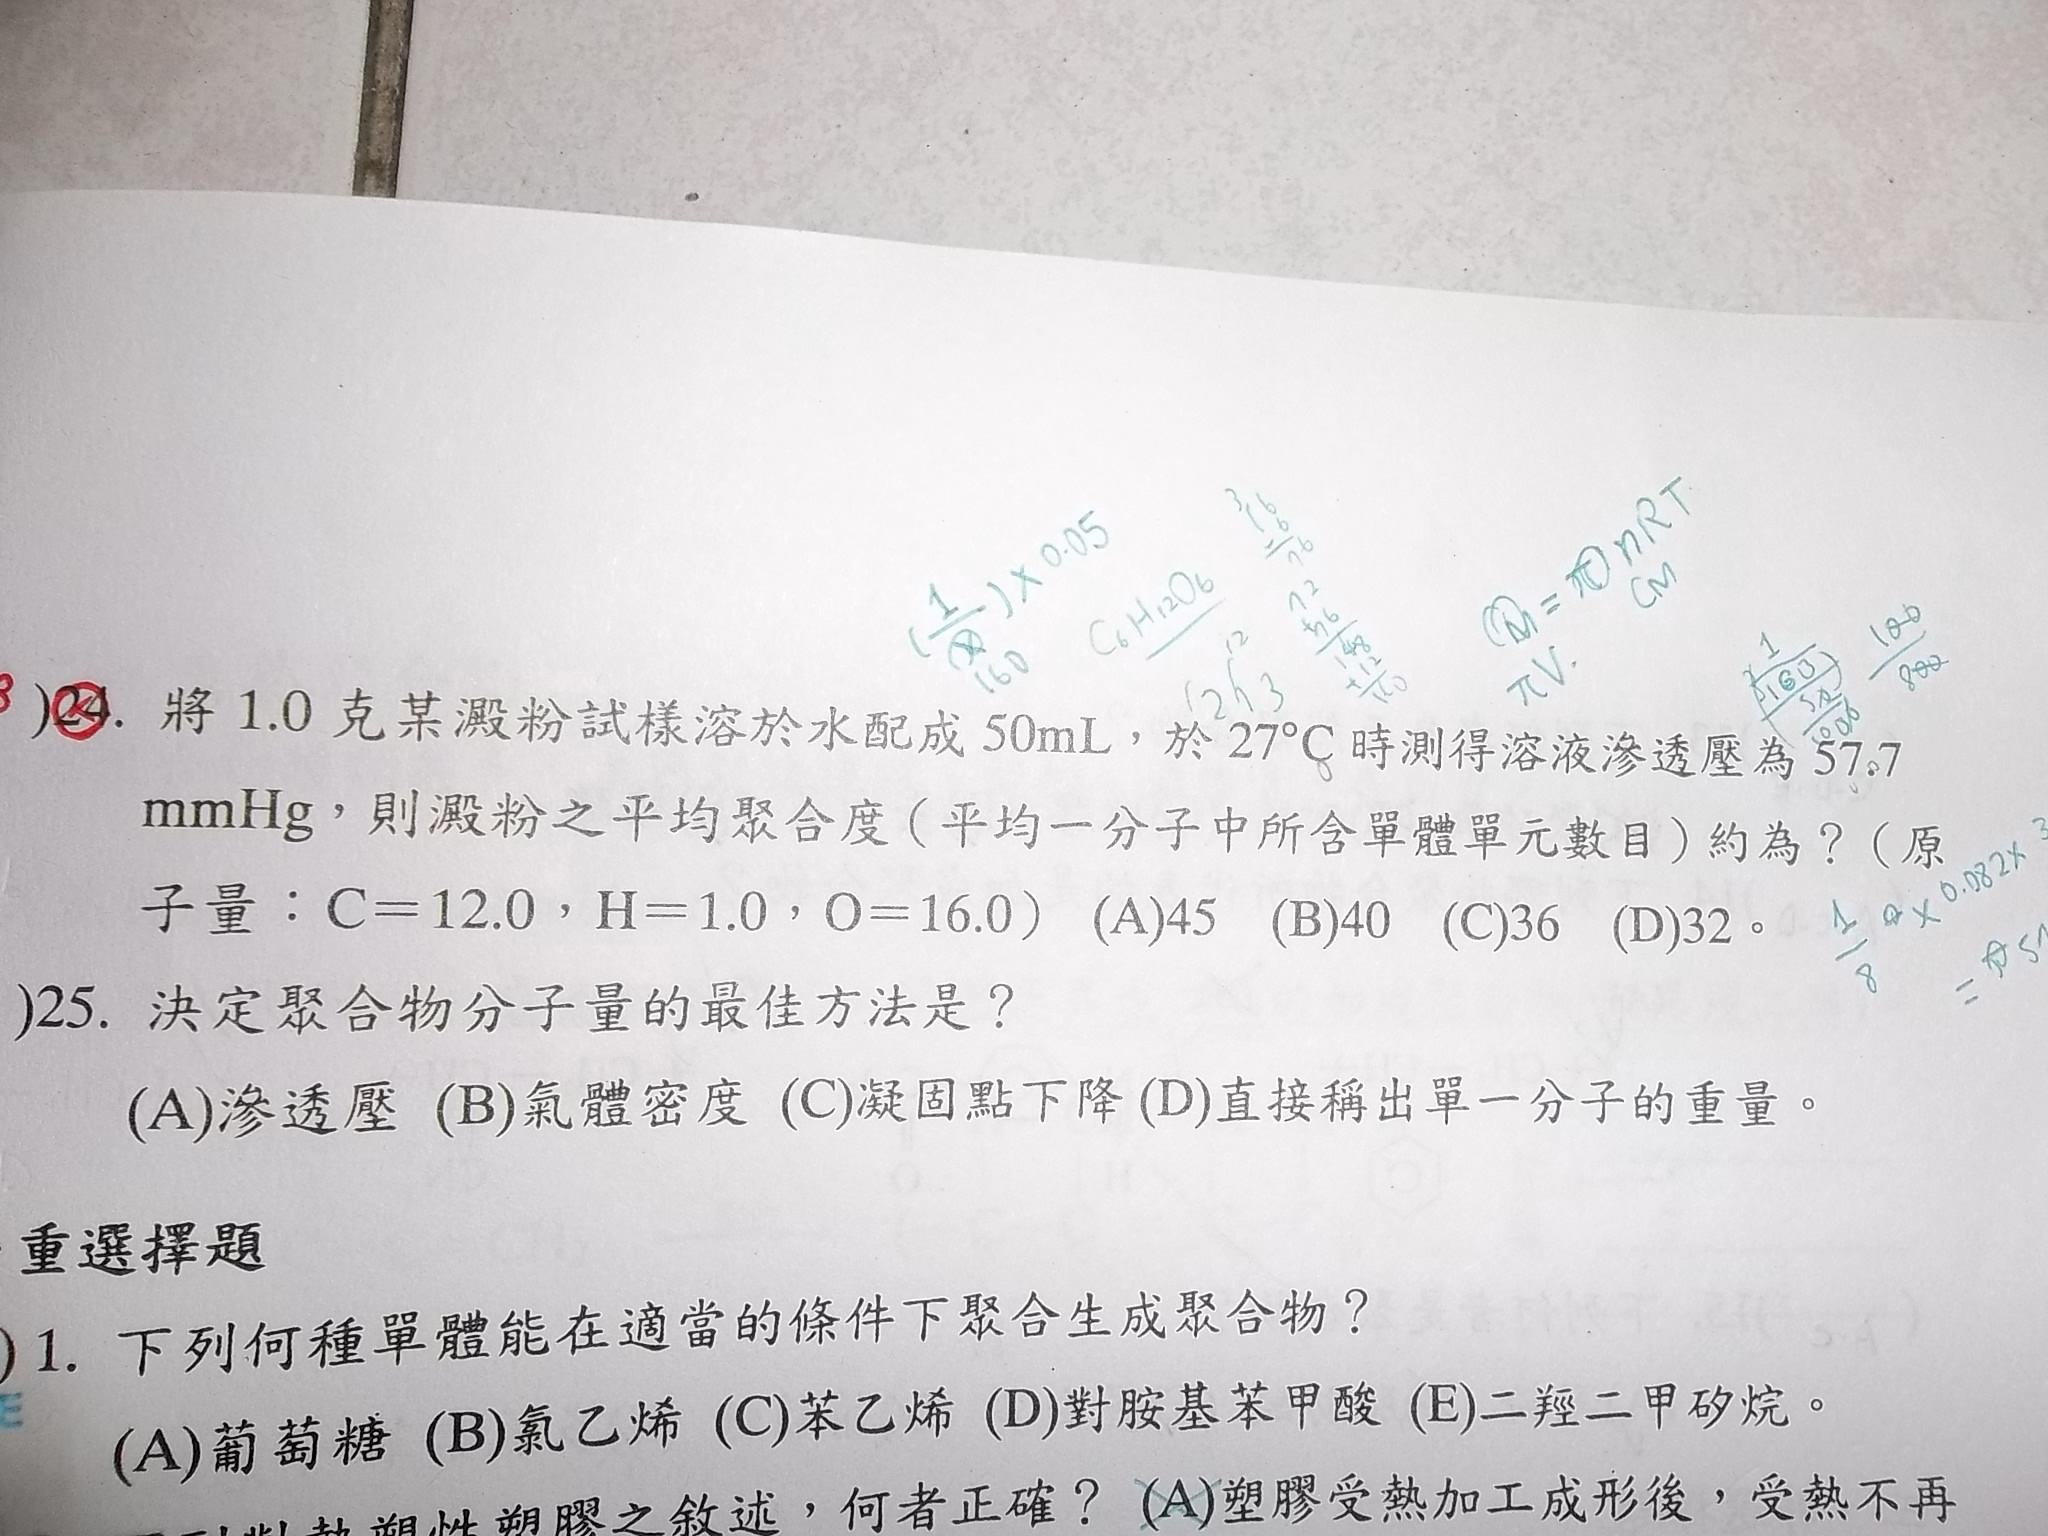 (1/160)×0.05
C6H12O6
πV = nRT
CM
πV
)24. 將 1.0 克某澱粉試樣溶於水配成 50mL，於 27°C 時測得溶液滲透壓為 57.7
mmHg，則澱粉之平均聚合度（平均一分子中所含單體單元數目）約為？（原
子量：C＝12.0，H＝1.0，O＝16.0） (A)45 (B)40 (C)36 (D)32。
)25. 決定聚合物分子量的最佳方法是？
(A)滲透壓 (B)氣體密度 (C)凝固點下降 (D)直接稱出單一分子的重量。
重選擇題
) 1. 下列何種單體能在適當的條件下聚合生成聚合物？
E
(A)葡萄糖 (B)氯乙烯 (C)苯乙烯 (D)對胺基苯甲酸 (E)二羥二甲矽烷。
熱塑性塑膠之敘述，何者正確？ (A)塑膠受熱加工成形後，受熱不再